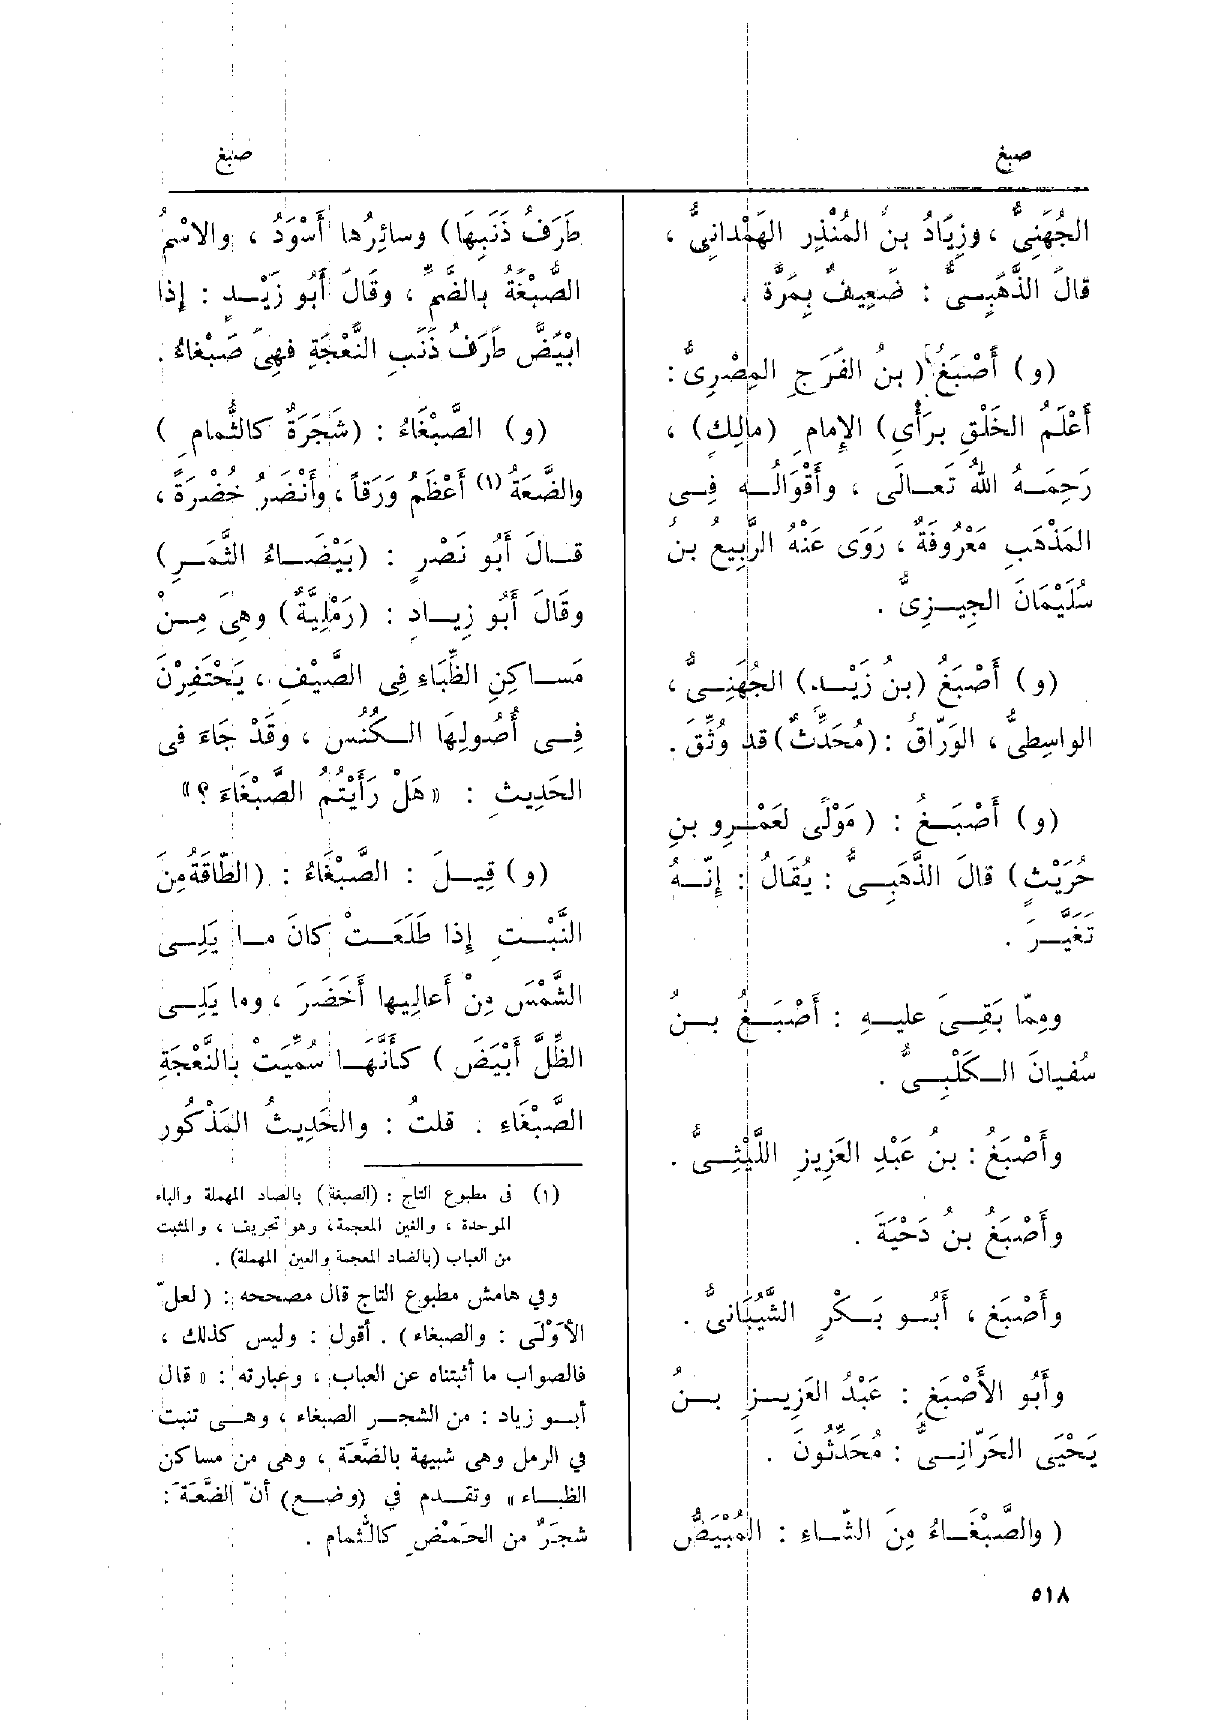 صبغ
صبغ
الجُهَنِىُّ ، وزِيَادُ بنُ المُنْذِرِ الهَمْدانِىُّ ،
قالَ الذَّهَبِىُّ : ضَعِيفٌ بِمَرَّة .
(و) أَصْبَغُ ( بنُ الفَرَجِ المِصْرِىُّ :
أَعْلَمُ الخَلْقِ برَأْىِ) الإِمامِ (مالِكٍ) ،
رَحِمَهُ اللهُ تَعالَى ، وأَقْوَالُه فِى
المَذْهَبِ مَعْرُوفَةٌ ، رَوَى عَنْهُ الرَّبِيعُ بنُ
سُلَيْمَانَ الجِيزِىُّ .
(و) أَصْبَغُ (بن زَيْدٍ) الجُهَنِىُّ ،
الواسِطِىُّ ، الوَرّاقُ : (مُحَدِّثٌ) قد وُثِّقَ .
(و) أَصْبَغُ : ( مَوْلًى لعَمْرِو بنِ
حُرَيْثٍ) قالَ الذَّهَبِىُّ : يُقَالُ : إِنّهُ
تَغَيَّرَ .
ومِمّا بَقِىَ عليهِ : أَصْبَغُ بنُ
سُفيانَ الكَلْبِىُّ .
وأَصْبَغُ : بنُ عَبْدِ العَزِيزِ اللَّيْثِىُّ .
وأَصْبَغُ بنُ دَحْيَةَ .
وأَصْبَغ ، أَبُو بَكْرٍ الشَّيْبَانىُّ .
وأَبُو الأَصْبَغِ : عَبْدُ العَزِيزِ بنُ
يَحْيَى الحَرّانِىُّ : مُحَدِّثُونَ .
( والصَّبْغَاءُ مِنَ الشّاءِ : المُبْيَضُّ
طَرَفُ ذَنَبِهَا) وسائِرُها أَسْوَدُ ، والاسْمُ
الصُّبْغَةُ بالضَّمِّ ، وقالَ أَبُو زَيْدٍ : إِذا
ابْيَضَّ طَرَفُ ذَنَبِ النَّعْجَةِ فهِىَ صَبْغاءُ .
(و) الصَّبْغَاءُ : (شَجَرَةٌ كالثُّمامِ )
والضَّعَةُ (١) أَعْظَمُ وَرَقاً ، وأَنْضَرُ خُضْرَةً ،
قالَ أَبُو نَصْرٍ : (بَيْضَاءُ الثَّمَرِ)
وقالَ أَبُو زِيادٍ : (رَمْلِيَّةٌ) وهِىَ مِنْ
مَساكِنِ الظِّبَاءِ فِى الصَّيْفِ ، يَحْتَفِرْنَ
فِى أُصُولِهَا الكُنُسَ ، وقَدْ جَاءَ فى
الحَدِيثِ : « هَلْ رَأَيْتُمُ الصَّبْغَاءَ ؟»
(و) قِيلَ : الصَّبْغَاءُ : (الطّاقَةُ مِنَ
النَّبْتِ إِذا طَلَعَتْ كانَ ما يَلِى
الشَّمْسَ مِنْ أَعالِيها أَخَضَرَ ، وما يَلِى
الظِّلَّ أَبْيَضَ ) كأَنَّهَا سُمِّيَتْ بالنَّعْجَةِ
الصَّبْغَاءِ . قلتُ : والحَدِيثُ المَذْكُور
(١) فى مطبوع التاج : (الصبغة) بالصاد المهملة والباء
الموحدة ، والغين المعجمة، وهو تحريف ، والمثبت
من العباب (بالضاد المعجمة والعين المهملة) .
وفي هامش مطبوع التاج قال مصححه : ( لعل ّ
الأَوْلَى : والصبغاء) . أقول : وليس كذلك ،
فالصواب ما أثبتناه عن العباب ، وعبارته : « قال
أبو زياد : من الشجر الصبغاء ، وهى تنبت
في الرمل وهى شبيهة بالضَّعَة ، وهى من مساكن
الظباء » وتقدم في (وضع) أنّ الضَّعَة :
شجَرٌ من الحَمْضِ كالثُّمام .
٥١٨